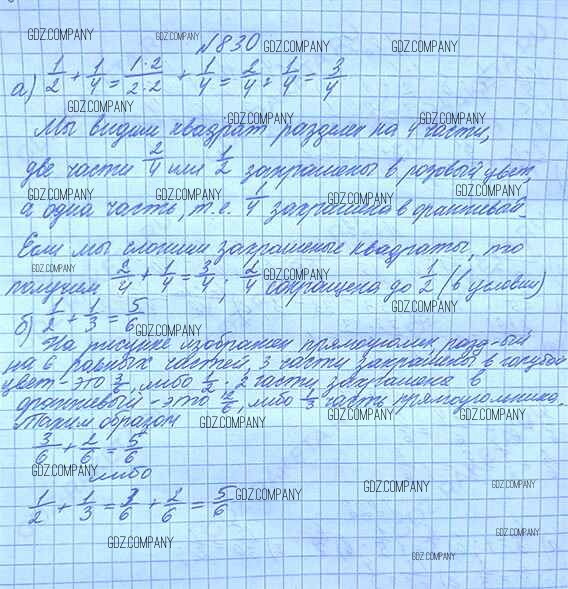 GDZ.COMPANY
GDZ.COMPANY
№830
GDZ.COMPANY
а) 1/2 + 1/4 = 1·2/2·2 + 1/4 = 2/4 + 1/4 = 3/4
GDZ.COMPANY
GDZ.COMPANY
GDZ.COMPANY
Мы видим квадрат разделен на 4 части,
две части 2/4 или 1/2 закрашены в розовый цвет,
GDZ.COMPANY
GDZ.COMPANY
GDZ.COMPANY
GDZ.COMPANY
а одна часть, т.е. 1/4 закрашена в оранжевый.
Если мы сложим закрашеные квадраты, то
GDZ.COMPANY
GDZ.COMPANY
получим 2/4 + 1/4 = 3/4 ; 2/4 сокращена до 1/2 (в условии)
GDZ.COMPANY
б) 1/2 + 1/3 = 5/6
GDZ.COMPANY
На рисунке изображен прямоугольник разд-ый
на 6 равных частей, 3 части закрашены в голубой
цвет - это 3/6, либо 1/2; 2 части закрашена в
оранжевый - это 2/6, либо 1/3 часть прямоугольника.
Таким образом
GDZ.COMPANY
GDZ.COMPANY
GDZ.COMPANY
3/6 + 2/6 = 5/6
GDZ.COMPANY
либо
GDZ.COMPANY
GDZ.COMPANY
1/2 + 1/3 = 3/6 + 2/6 = 5/6
GDZ.COMPANY
GDZ.COMPANY
GDZ.COMPANY
GDZ.COMPANY